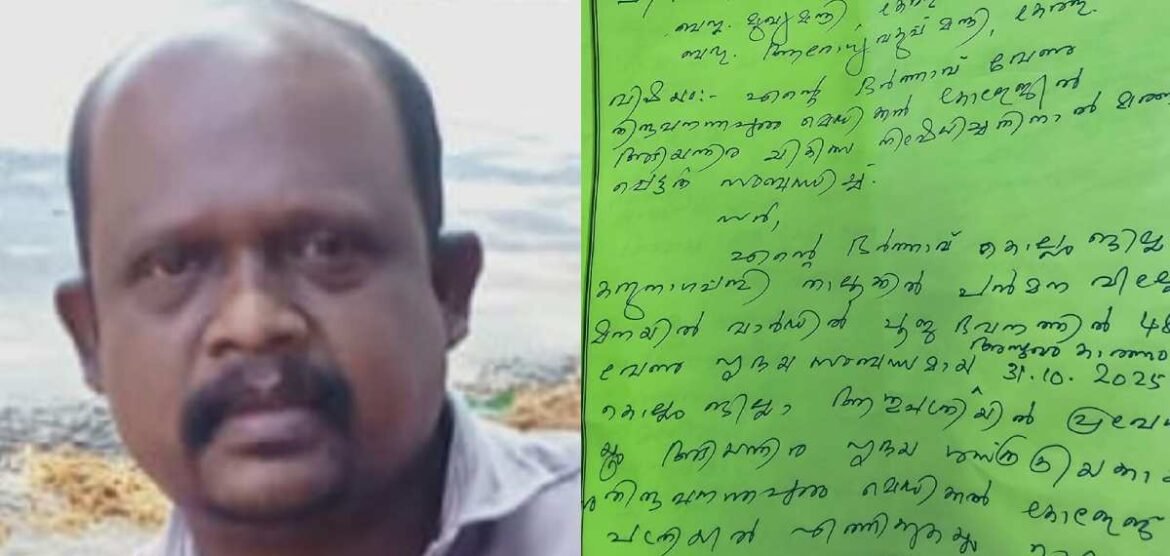 ബഹു. മുഖ്യമന്ത്രി, കേരള
ബഹു. ആരോഗ്യ വകുപ്പ് മന്ത്രി, കേരള.
വിഷയം:- എന്റെ ഭർത്താവ് വേണു
തിരുവനന്തപുരം മെഡിക്കൽ കോളേജിൽ
അടിയന്തിര ചികിത്സ നിഷേധിച്ചതിനാൽ
സംബന്ധിച്ച്.
സർ,
എന്റെ ഭർത്താവ് കൊല്ലം ജില്ല
കരുനാഗപ്പള്ളി താലൂക്കിൽ പൻമന
മനയിൽ വാർഡിൽ പൂജ ഭവനത്തിൽ 48
വേണു ഹൃദയ സംബന്ധമായ 31.10.2025
കൊല്ലം ജില്ലാ ആശുപത്രിയിൽ
അടിയന്തിര ഹൃദയ
തിരുവനന്തപുരം മെഡിക്കൽ കോളേജ്
എത്തിയതും